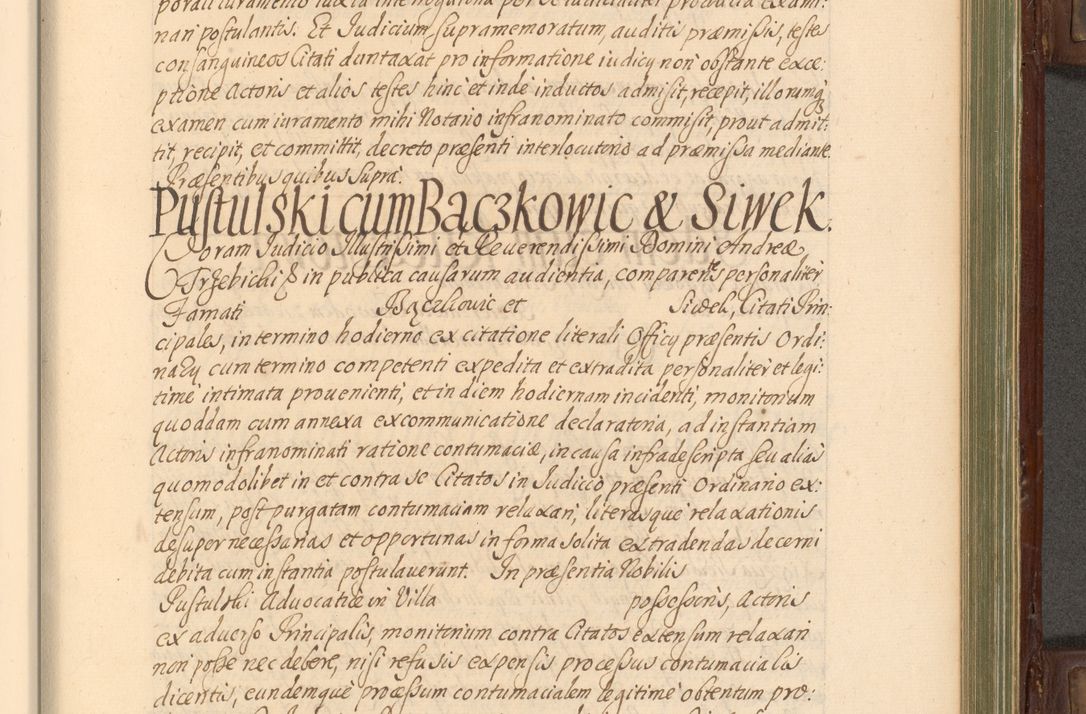 porali iuramento iuxta interrogatoria per se iudicialiter producta exami:
nari postulantis. Et Iudicium supramemoratum, auditis præmissis, teste
consanguineos Citati duntaxat pro informatione iudicij non obstante exce:
ptione Actoris et alios testes hinc et inde inductos admisit, recepit, illorumq3
examen cum iuramento mihi Notario infranominato commisit, prout admit:
tit, recipit, et committit, decreto præsenti interlocutorio ad præmissa mediante.
Præsentibus quibus supra.
Pustulski cum Bączkowic & Siwek.
Coram Iudicio Illustrissimi et Reuerendissimi Domini Andreæ
Trzebicki & in publica causarum audientia, comparentes personaliter
Famati Bączkowic et Siwek, Citati Prin:
cipales, in termino hodierno ex citatione literali Officij præsentis Ordi:
narij cum termino competenti expedita et extradita personaliter et legi:
time intimata prouenienti, et in diem hodiernam incidenti, monitorium
quoddam cum annexa excommunicatione declaratoria, ad instantiam
Actoris infranominati ratione contumaciæ, in causa infradescripta seu alias
quomodolibet in et contra se Citatos in Iudicio præsenti Ordinario ex:
tensum, post purgatam contumaciam relaxari, literasque relaxationis
desuper necessarias et opportunas in forma solita extradendas decerni
debita cum instantia postulauerunt. In præsentia Nobilis
Pustulski Aduocatiæ in Villa possessoris, Actoris
ex aduerso Principalis, monitorium contra Citatos extensum relaxari
non posse nec debere, nisi refusis expensis processus contumacialis
dicentis, eundemque processum contumacialem legitime obtentum pro: